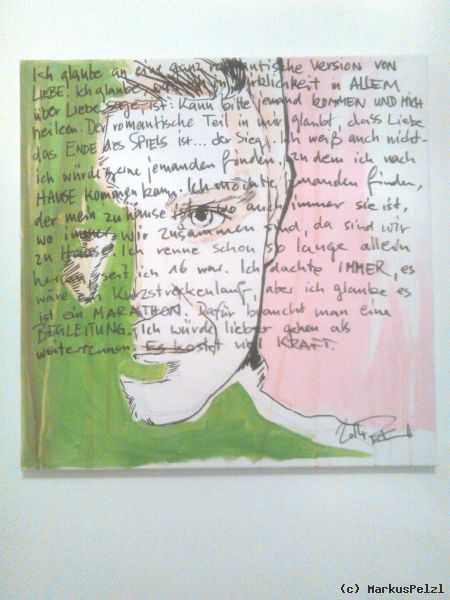 Ich glaube an eine ganz romantische VERSION VON
LIEBE. Ich glaube, was ich in Wirklichkeit in ALLEM
über Liebe sage, ist: Kann bitte jemand KOMMEN UND MICH
heilen. Der romantische Teil in mir glaubt, dass Liebe
das ENDE DES SPIELS ist... der Sieg. Ich weiß auch nicht-
ich würde gerne jemanden finden, zu dem ich nach
HAUSE kommen kann. Ich möchte jemanden finden,
der mein zu hause ist, wo auch immer sie ist,
wo immer wir zusammen sind, da sind wir
zu Hause. Ich renne schon so lange allein
herum, seit ich 16 war. Ich dachte IMMER, es
wäre ein Kurzstreckenlauf, aber ich glaube es
ist ein MARATHON. Dafür braucht man eine
BEGLEITUNG. Ich würde lieber gehen als
weiterrennen. Es kostet viel KRAFT.
2014
(c) MarkusPelzl